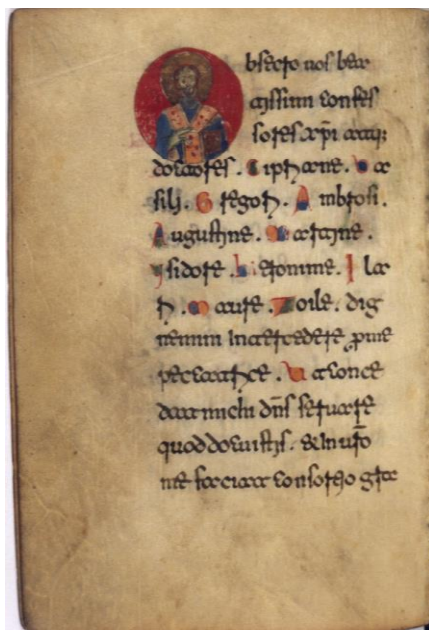 Obsecro uos bea
tissimi confes
sores xpi atq;
doctores. Cipriane. Ba
silij. Gregori. Ambrosi.
Augustine. Martine.
Ysidore. Hieronime. Ila
ri. Maure. Zoile. dig
nemini intercedere p me
peccatrice. Ut conce
dat michi dns seruare
quod docuistis. & In uro
me faciat consortio gra